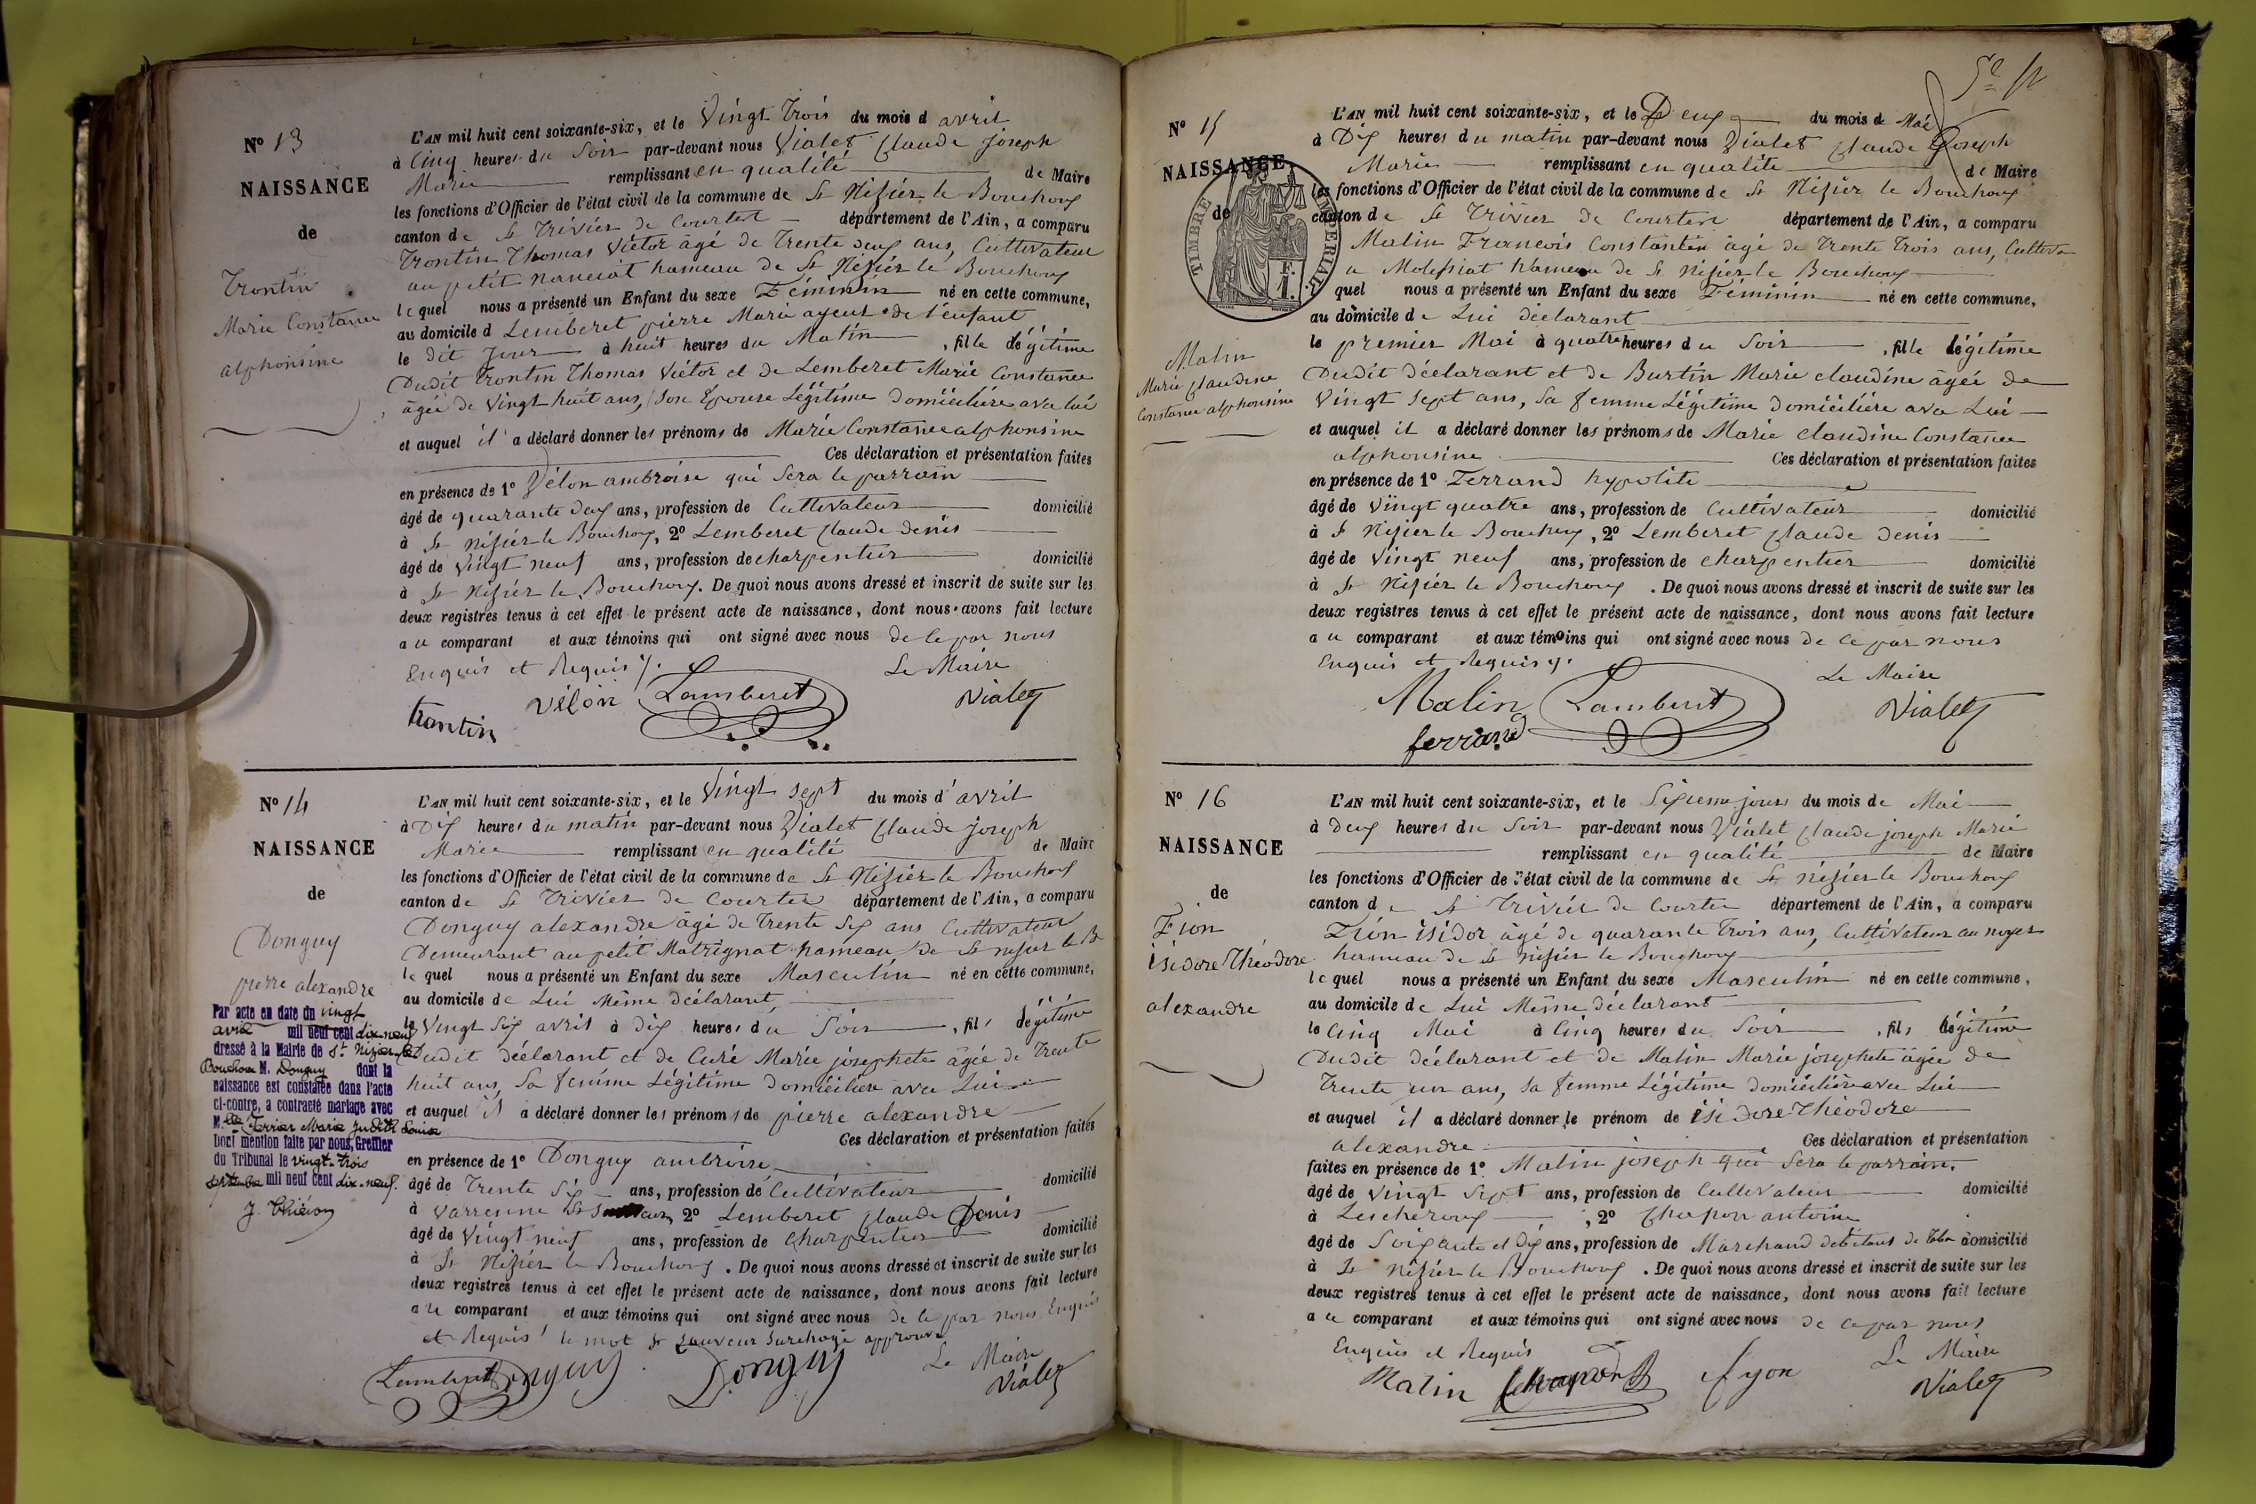 Nº 13
NAISSANCE
de
Trontin
Marie Constance
alphonsine
L'AN mil huit cent soixante-six, et le Vingt Trois du mois d avril
à Cinq heures du Soir par-devant nous Vialet Claude Joseph
Marie remplissant en qualité de Maire
les fonctions d'Officier de l'état civil de la commune de St Nizier le Bouchoux
canton de St Trivier de Courtes département de l'Ain, a comparu
Trontin Thomas Victor âgé de Trente deux ans, Cultivateur
au petit nanciat hameau de St Nizier le Bouchoux
lequel nous a présenté un Enfant du sexe Féminin né en cette commune,
au domicile d Lemberet pierre Marie ayeul de l'enfant
le dit Jour à huit heures du Matin, fille légitime
Dudit Trontin Thomas Victor et de Lemberet Marie Constance
âgée de Vingt huit ans, Son Epouse Légitime domiciliée avec lui
et auquel il a déclaré donner les prénoms de Marie Constance alphonsine
Ces déclaration et présentation faites
en présence de 1º Vélon ambroise qui Sera le parrain
âgé de quarante deux ans, profession de Cultivateur domicilié
à St Nizier le Bouchoux, 2º Lemberet Claude denis
âgé de Vingt neuf ans, profession de charpentier domicilié
à St Nizier le Bouchoux. De quoi nous avons dressé et inscrit de suite sur les
deux registres tenus à cet effet le présent acte de naissance, dont nous avons fait lecture
au comparant et aux témoins qui ont signé avec nous de ce par nous
Enquis et Requis %.
Le Maire
trontin Vélon Lamberet Vialet
Nº 14
NAISSANCE
de
Donguy
pierre alexandre
Par acte en date du vingt
avril mil neuf cent dix-neuf
dressé à la Mairie de St Nizier-le
Bouchoux M. Donguy dont la
naissance est constatée dans l'acte
ci-contre, a contracté mariage avec
M.lle Terrier Marie Judith Louise
Dont mention faite par nous, Greffier
du Tribunal le vingt-trois
septembre mil neuf cent dix-neuf.
L'AN mil huit cent soixante-six, et le Vingt sept du mois d'avril
à Dix heures du matin par-devant nous Vialet Claude Joseph
Marie remplissant en qualité de Maire
les fonctions d'Officier de l'état civil de la commune de St Nizier le Bouchoux
canton de St Trivier de Courtes département de l'Ain, a comparu
Donguy alexandre âgé de Trente Six ans Cultivateur
Demeurant au petit Matrignat hameau de St nizier le B
lequel nous a présenté un Enfant du sexe Masculin né en cette commune,
au domicile de Lui Même déclarant
le Vingt Six avril à dix heures du Soir, fils légitime
Dudit déclarant et de Curé Marie josephete âgée de Trente
huit ans, Sa femme Légitime Domiciliée avec Lui
et auquel il a déclaré donner les prénoms de pierre alexandre
Ces déclaration et présentation faites
en présence de 1º Donguy ambroise
âgé de Trente Six ans, profession de Cultivateur domicilié
à Varrenne St Sauveur 2º Lemberet Claude Denis
âgé de Vingt neuf ans, profession de Charpentier domicilié
à St Nizier le Bouchoux. De quoi nous avons dressé et inscrit de suite sur les
deux registres tenus à cet effet le présent acte de naissance, dont nous avons fait lecture
au comparant et aux témoins qui ont signé avec nous de ce par nous Enquis
et Requis le mot St Sauveur Surchagé approuvé
Le Maire
Lamberet Donguy Donguy Vialet
Nº 15
NAISSANCE
de
TIMBRE IMPERIAL
F.
1.
Malin
Marie Claudine
Constance alphonsine
L'AN mil huit cent soixante-six, et le Deux du mois de Mai
à Dix heures du matin par-devant nous Vialet Claude Joseph
Marie remplissant en qualité de Maire
les fonctions d'Officier de l'état civil de la commune de St Nizier le Bouchoux
canton de St Trivier de Courtes département de l'Ain, a comparu
Malin Francois Constantin âgé de Trente Trois ans, Cultiva
a Molissiat hameau de St Nizier le Bouchoux
quel nous a présenté un Enfant du sexe Féminin né en cette commune,
au domicile de Lui déclarant
le premier Mai à quatre heures du Soir, fille légitime
Dudit déclarant et de Burtin Marie claudine âgée de
Vingt Sept ans, Sa femme Légitime Domiciliée avec Lui
et auquel il a déclaré donner les prénoms de Marie Claudine Constance
alphonsine Ces déclaration et présentation faites
en présence de 1º Ferrand hypolite
âgé de Vingt quatre ans, profession de Cultivateur domicilié
à St Nizier le Bouchoux, 2º Lemberet Claude denis
âgé de Vingt neuf ans, profession de charpentier domicilié
à St Nizier le Bouchoux. De quoi nous avons dressé et inscrit de suite sur les
deux registres tenus à cet effet le présent acte de naissance, dont nous avons fait lecture
au comparant et aux témoins qui ont signé avec nous de ce par nous
Enquis et Requis %.
Le Maire
Malin Lamberet Vialet
ferrand
Nº 16
NAISSANCE
de
Fion
isidore Théodore
alexandre
L'AN mil huit cent soixante-six, et le Sixieme jours du mois de Mai
à deux heures du Soir par-devant nous Vialet Claude joseph Marie
remplissant en qualité de Maire
les fonctions d'Officier de l'état civil de la commune de St nizier le Bouchoux
canton de St Trivier de Courtes département de l'Ain, a comparu
Fion isidor âgé de quarante Trois ans, Cultivateur au noyer
hameau de St nizier le Bouchoux
lequel nous a présenté un Enfant du sexe Masculin né en cette commune,
au domicile de Lui Même déclarant
le Cinq Mai à Cinq heures du Soir, fils légitime
Dudit déclarant et de Malin Marie josephete âgée de
Trente un ans, Sa femme Légitime domiciliée avec Lui
et auquel il a déclaré donner le prénom de isidore Théodore
alexandre Ces déclaration et présentation
faites en présence de 1º Malin joseph qui Sera le parrain.
âgé de Vingt Sept ans, profession de Cultivateur domicilié
à Lescheroux, 2º Chapon antoine
âgé de Soixante et dix ans, profession de Marchand debitant de Taba domicilié
à St Nizier le Bouchoux. De quoi nous avons dressé et inscrit de suite sur les
deux registres tenus à cet effet le présent acte de naissance, dont nous avons fait lecture
au comparant et aux témoins qui ont signé avec nous de ce par nous
Enquis et Requis
Le Maire
Malin Chapon fyon Vialet